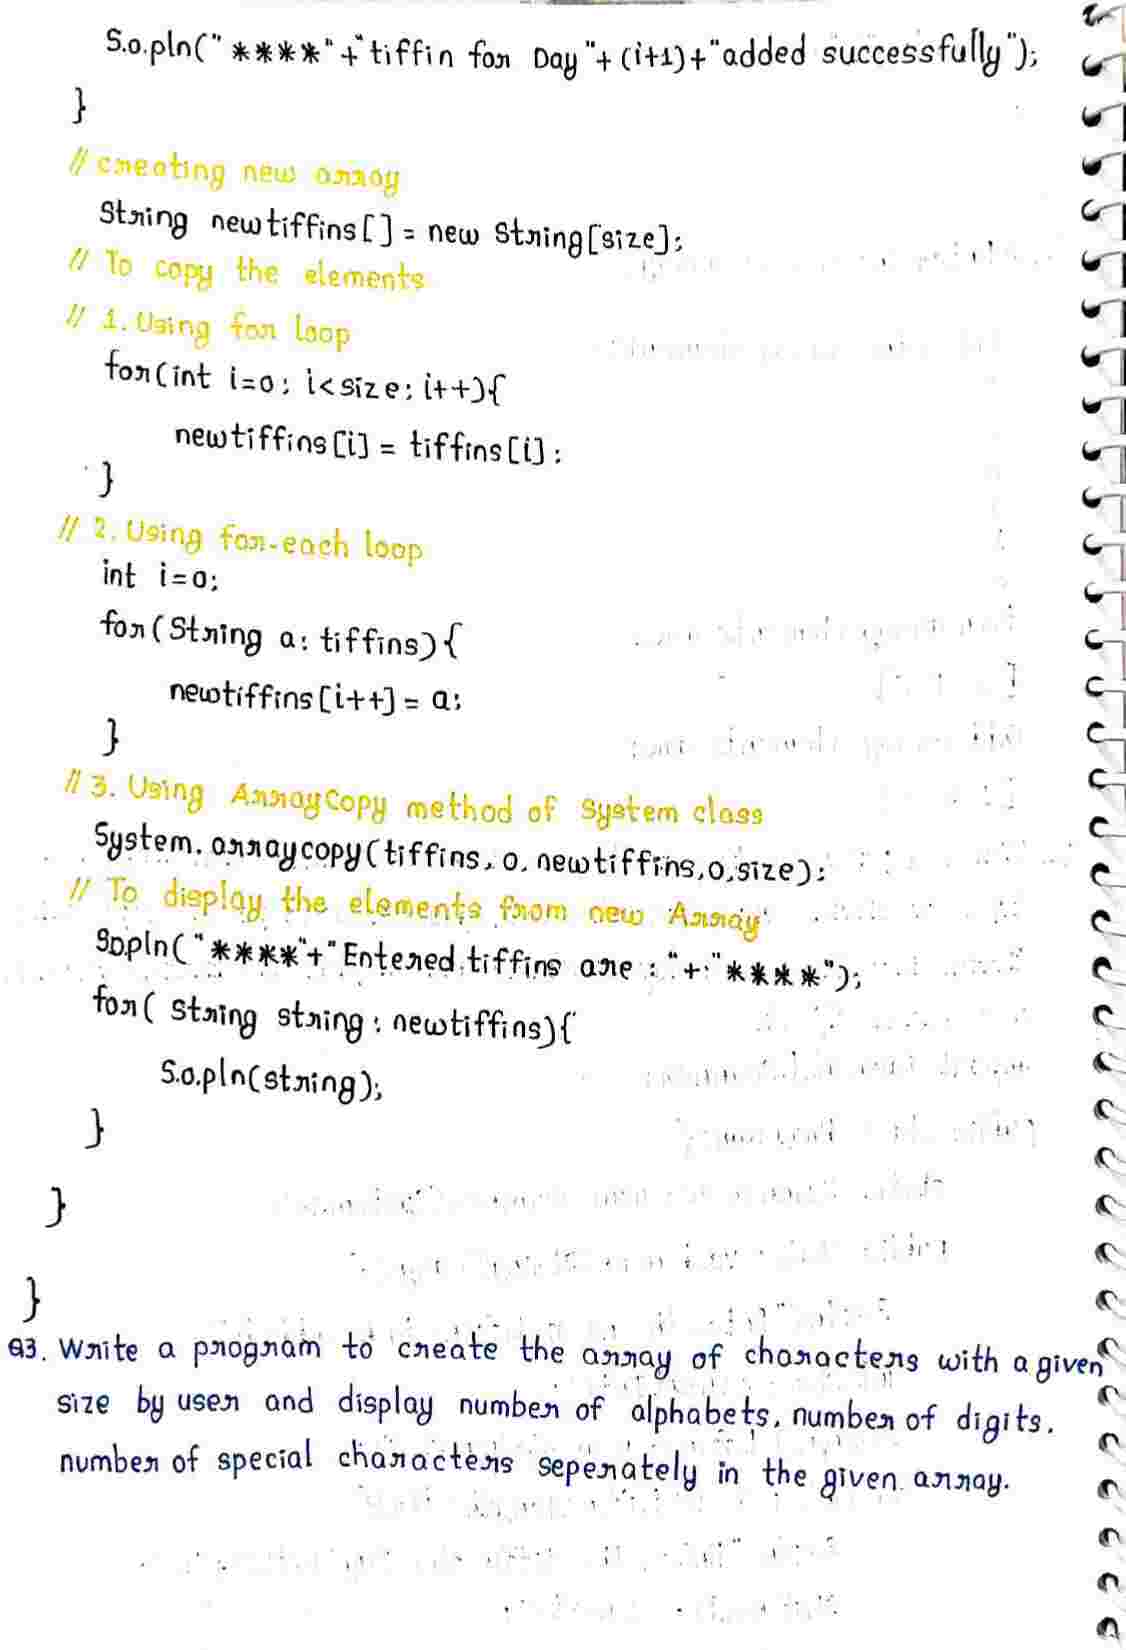 S.o.pln("****"+"tiffin for Day"+(i+1)+"added successfully");
}
// creating new array
String newtiffins[] = new String[size];
// To copy the elements
// 1. Using for loop
for(int i=0; i<size; i++){
newtiffins[i] = tiffins[i];
}
// 2. Using for-each loop
int i=0;
for(String a: tiffins){
newtiffins[i++] = a;
}
// 3. Using ArrayCopy method of System class
System.arraycopy(tiffins, 0, newtiffins,0,size);
// To display the elements from new Array
S.o.pln("****"+"Entered tiffins are :"+"****");
for( String string : newtiffins){
S.o.pln(string);
}
}
}
Q3. Write a program to create the array of characters with a given
size by user and display number of alphabets, number of digits,
number of special characters seperately in the given array.